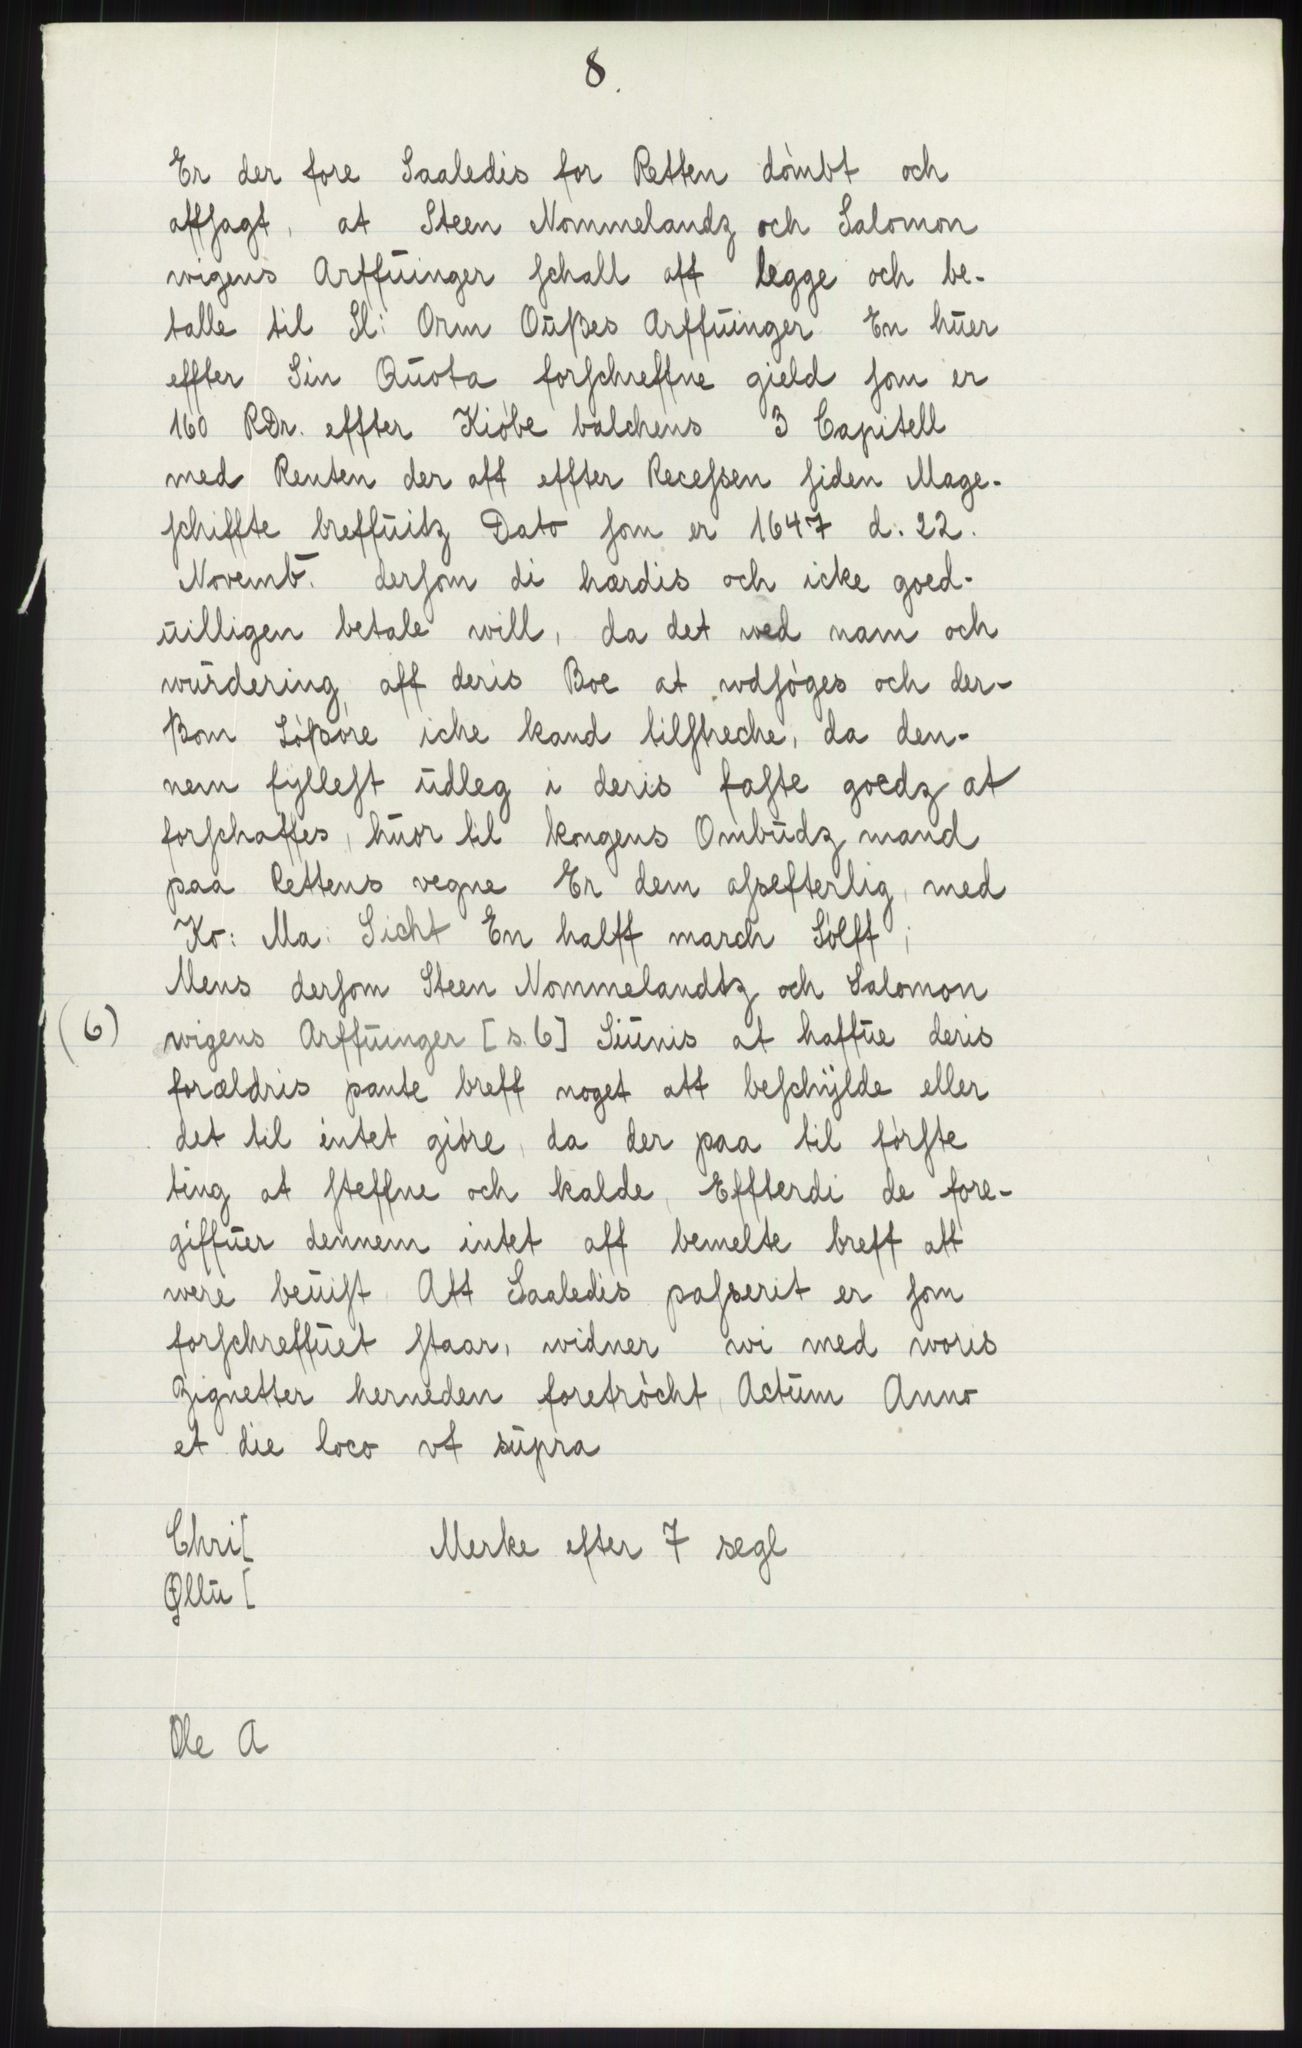 8.
Er der fore Saaledis for Retten dòmbt och
affsagt, at Steen Nommelandz och Salomon
wigens Arffūinger schall aff legge och be-
talle til Sl: Orm Oūßes Arffūinger En hūer
effter Sin Qūota forschreffne gield som er
160 RDr. effter Kiòbe balchens 3 Capitell
med Renten der aff effter Recessen siden Mage-
schiffte breffūitz Dato som er 1647 d. 22.
Novemb. dersom di hærdis och icke goed-
ūilligen betale will, da det wed nam och
wūrdering aff deris Boe at wdsòges och der-
ßom Lòßøre iche kand tilstreche, da den-
nem fyllest ūdleg i deris faste goedz at
forschaffes, hūor til kongens Ombūdz mand
paa Rettens vegne Er dem assefterlig, med
Ko: Ma: Sicht En halff march Sòlff;
Mens dersom Steen Nommelandtz och Salomon
(6) wigens Arffūinger [s. 6] Siūnis at haffūe deris
forældris pante breff noget att beschÿlde eller
det til intet gióre, da der paa til fórste
ting at steffne och kalde, Effterdi de fore-
giffūer dennem intet aff bemelte breff att
were beūist. Att Saaledis passerit er som
forschreffūet staar, widner wi med woris
Zignetter herneden foretròcht, Actūm Anno
et die loco vt sūpra
Chri[ Merke efter 7 segl
Øllū [
Ole A